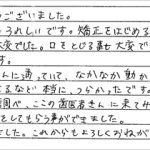 ございました。
うれしいです。矯正をはじめる
大変でした。口をとじる事も大変で
す。
んに通っていて、なかなか動か
るなど本当に、つらかったです。
調べ、ここの歯医者さんに来てみ
をしてもらう事ができました。
ました。これからもよろしくおねがい